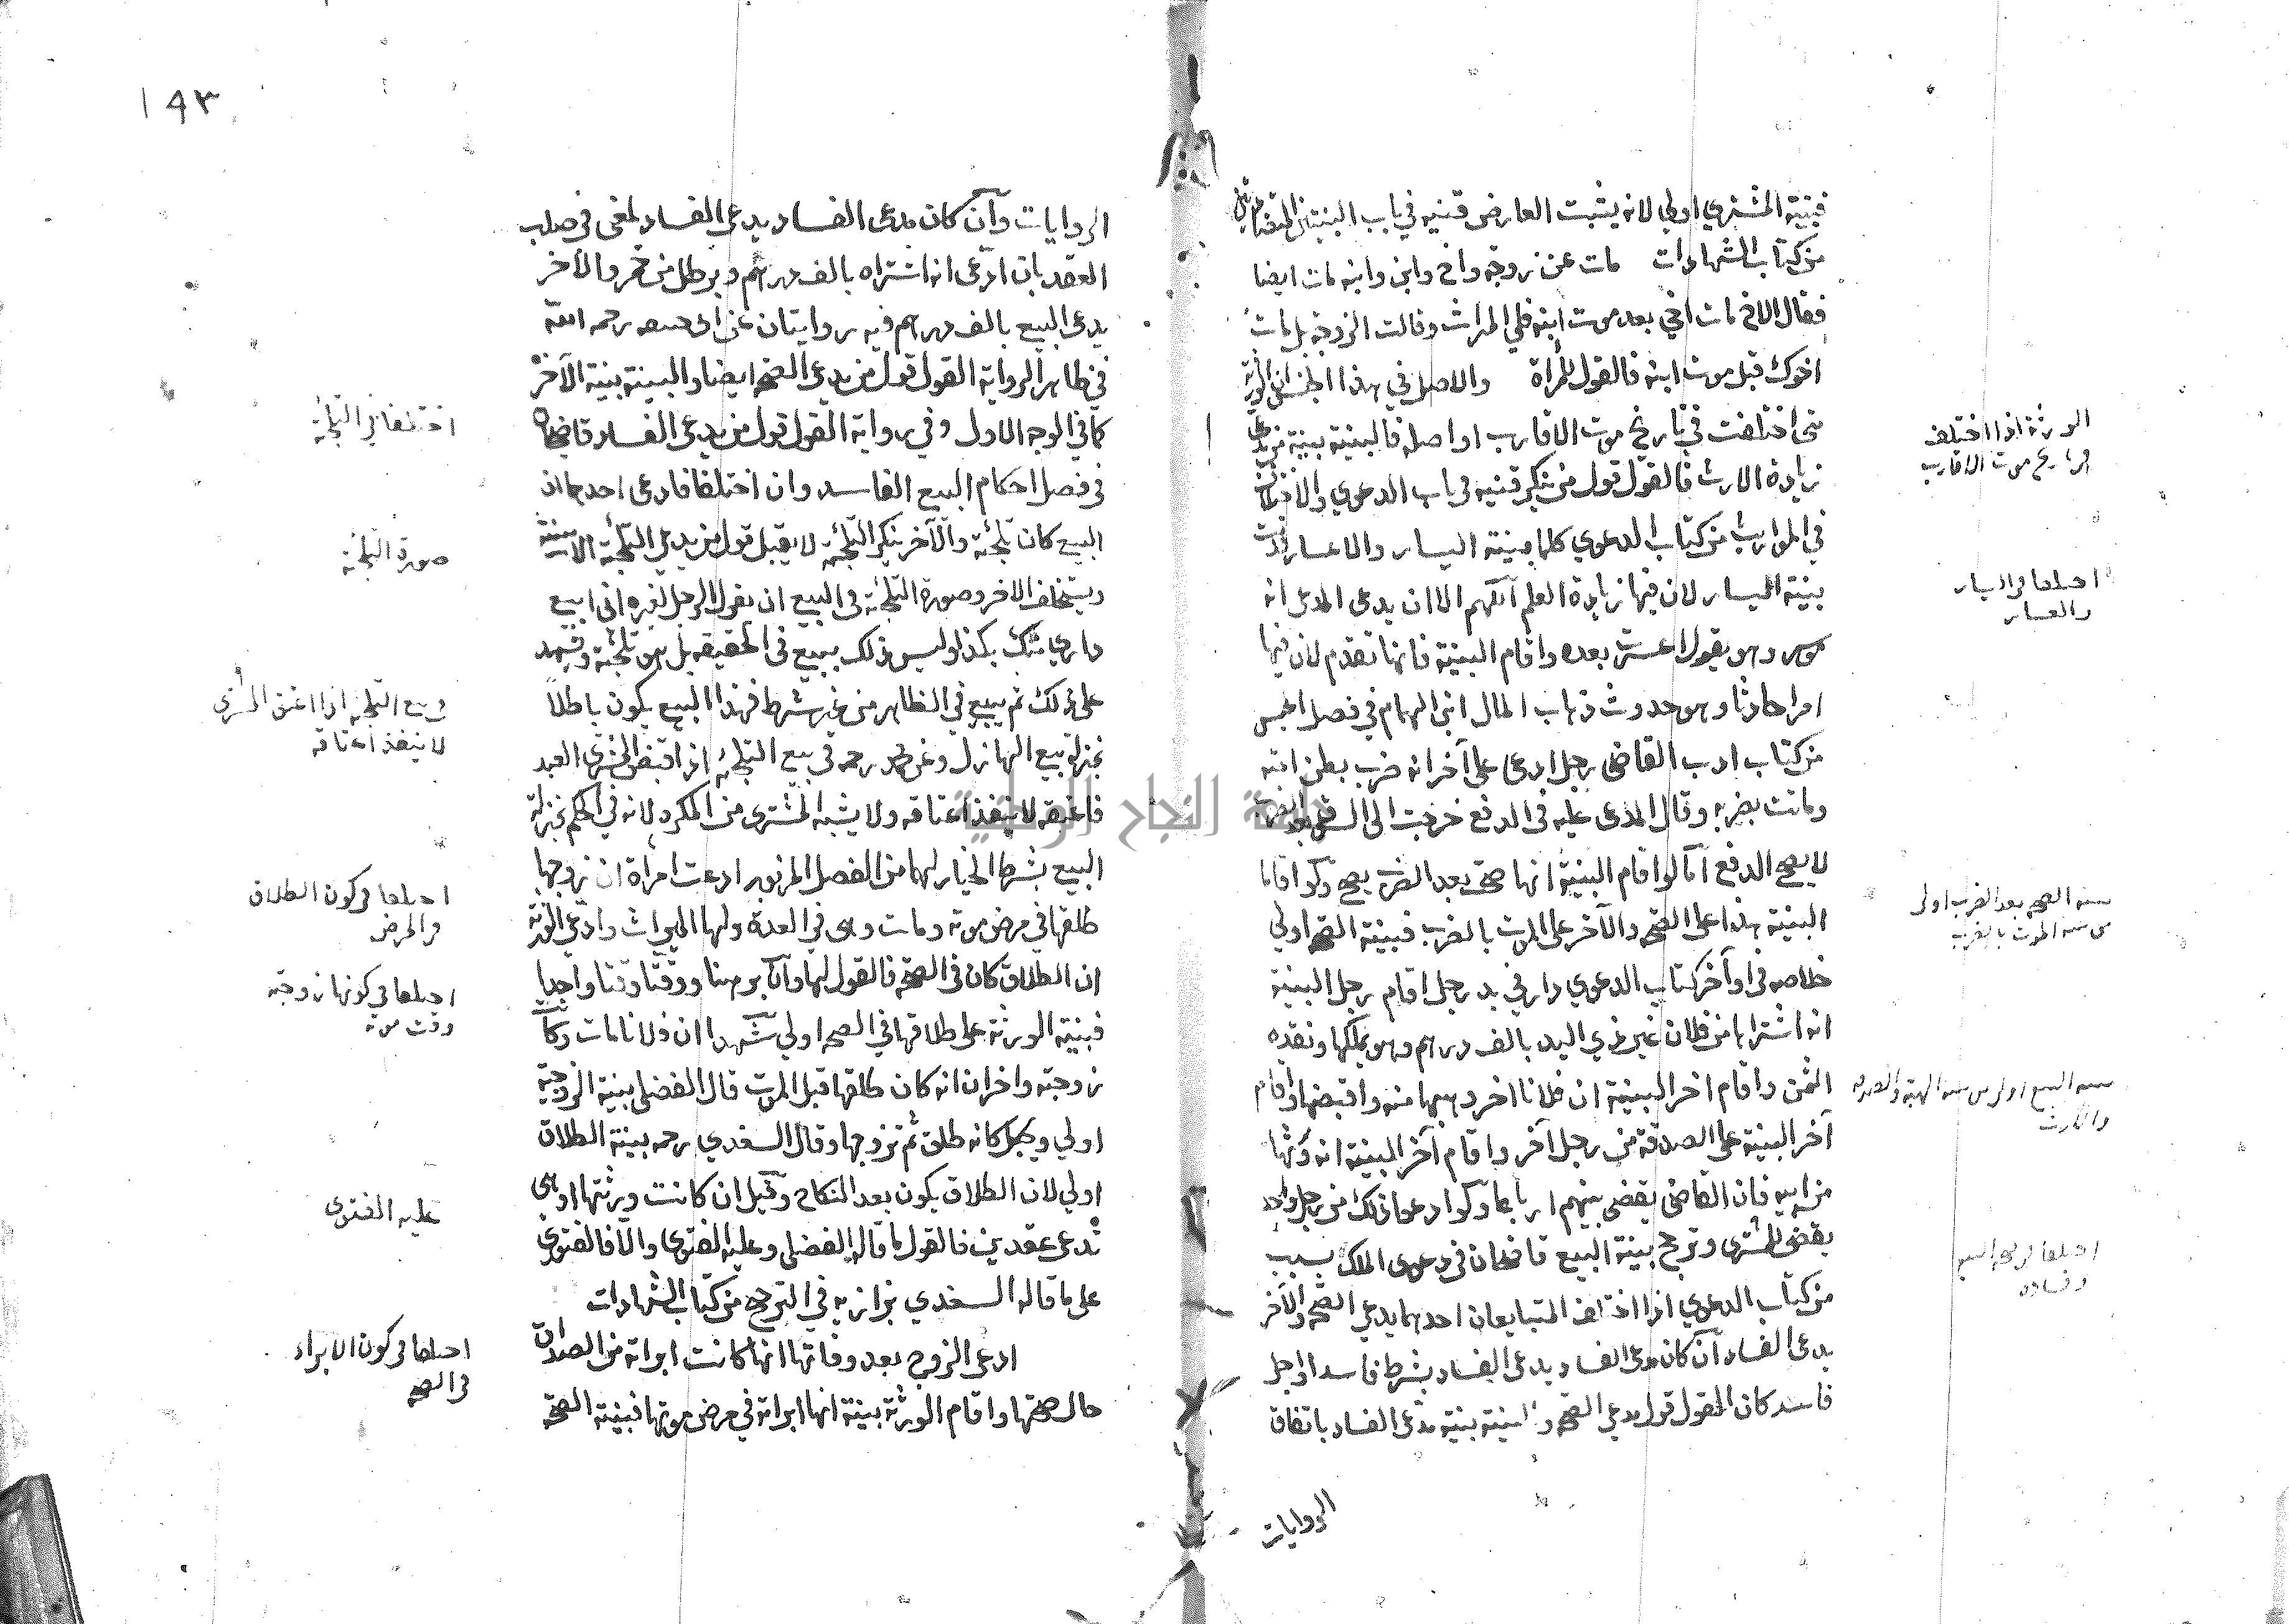 فبينة المشتري اولي لانه يثبت العارض قنيه في باب البينتين المتضادتين
من كتاب الشهادات مات عن زوجة واخ وابن وابنه مات ايضا
فقال الاخ مات اخي بعد موت ابنه فلي الميراث وقالت الزوجة بل مات
اخوك قبل موت ابنه فالقول للمرأة والاصل في هذا الجنس ان الورثة
متى اختلفت في تاريخ موت الاقارب او اصله فالبينة بينة من يدعي
زيادة الارث فالقول قول من ينكر قنيه في باب الدعوي والاختلاف
في المواريث من كتاب الدعوي كلما بينة اليسار والاعسار قدمت
بينة اليسار لان فيها زيادة العلم اللهم الا ان يدعى المدعى انه
موسر وهو يقول اعسرت بعده واقام البينة فانها تقدم لان فيها
امرا حادثا وهو حدوث ذهاب المال ابن الهمام في فصل الحبس
من كتاب ادب القاضى رجل ادعى على آخر انه ضرب بطن امته
وماتت بضربه وقال المدعى عليه في الدفع خرجت الى السوق بعد الضرب
لا يصح الدفع اما لو اقام البينة انها صحت بعد الضرب يصح ولو اقاما
البينة هذا على الصحة والآخر على الموت بالضرب فبينة الصحة اولي
خلاصه في اوآخر كتاب الدعوي دار في يد رجل اقام رجل البينة
انه اشتراها من فلان غير ذي اليد بالف درهم وهو يملكها ونقده
الثمن واقام اخر البينة ان فلانا اخر وهبها منه واقبضها واقام
آخر البينة على الصدقة من رجل آخر واقام آخر البينة انه ورثها
من ابيه فان القاضى يقضى بينهم ارباعا ولو ادعوا ذلك من رجل واحد
يقضى للمشترى وترجح بينة البيع قاضخان في دعوى الملك بسبب
من كتاب الدعوي اذا اختلف المتبايعان احدهما يدعي الصحة والآخر
يدعى الفساد ان كان مدعى الفساد يدعى الفساد بشرط فاسد او اجل
فاسد كان القول قول مدعي الصحة والبينة بينة مدعى الفساد باتفاق
الروايات
الورثة اذا اختلف
في تاريخ موت الاقارب
اختلفا في اليسار
والعسار
بينة الصحة بعد الضرب اولى
من بينة الموت بالضرب
بينة البيع اولى من بينة الهبة والصدقة
والارث
اختلفا في صحة البيع
وفساده
١٩٣
الروايات وآن كان مدعى الفساد يدعى الفساد لمعنى في صلب
العقد بان ادعى انه اشتراه بالف درهم وبرطل من خمر والآخر
يدعى البيع بالف درهم فيه روايتان عن ابى حنيفه رحمه الله
في ظاهر الرواية القول قول من يدعي الصحة ايضا والبينة بينة الآخر
كما في الوجه الاول وفي رواية القول قول من يدعى الفساد قاضخان
في فصل احكام البيع الفاسد وان اختلفا فادعى احدهما ان
البيع كان تلجئة والآخر ينكر التلجئة لا يقبل قول من يدعي التلجئة الا ببينة
ويستحلف الاخر وصورة التلجئة في البيع ان يقول الرجل لغيره انى ابيع
داري منك بكذا وليس ذلك ببيع في الحقيقه بل هو تلجئة ويشهد
على ذلك ثم يبيع في الظاهر من غير شرط فهذا البيع يكون باطلا
بمنزلة بيع الهازل وعن محمد رحمه في بيع التلجئة اذا قبض المشترى العبد
فاعتقه لا ينفذ اعتاقه ولا يشبه المشترى من المكره لانه في الحكم بمنزلة
البيع بشرط الخيار لهما من الفصل المزبور ادعت امراة ان زوجها
طلقها في مرض موته ومات وهى في العدة ولها الميراث وادعى الورثة
ان الطلاق كان في الصحة فالقول لها وان برهنا ووقتا وقتا واحدا
فبينة الورثة على طلاقها في الصحة اولي شهدا ان فلانا مات وكانت
زوجته واخران انه كان طلقها قبل الموت قال الفضلي بينة الزوجية
اولي ويجعل كانه طلق ثم تزوجها وقال السغدي رحمه بينة الطلاق
اولي لان الطلاق يكون بعد النكاح وقيل ان كانت ورثتها او هى
تدعى عقدين فالقول ما قاله الفضلى وعليه الفتوى والا فالفتوى
على ما قاله السغدي بزازيه في الترجيح من كتاب الشهادات
ادعى الزوج بعد وفاتها انها كانت ابراته من الصداق
حال صحتها واقام الورثة بينة انها ابراته في مرض موتها فبينة الصحة
اختلفا في التلجئة
صورة التلجئة
في بيع التلجئة اذا اعتق المشترى
لا ينفذ اعتاقه
اختلفا في كون الطلاق
في المرض
اختلفا في كونها زوجته
وقت موته
عليه الفتوى
اختلفا في كون الابراء
في الصحة
جامعة النجاح الوطنية